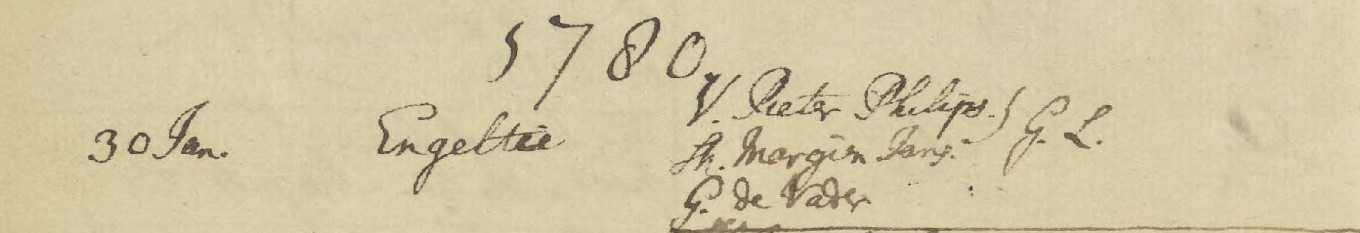 1780
V. Pieter Philips. } G. L.
30 Jan. Engeltie
M. Margien Jans.
G. de Vader